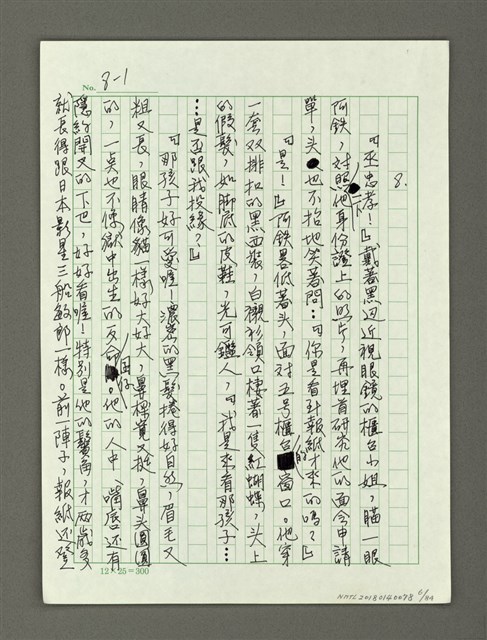 No. 8-1
8.
『巫忠孝!』戴著黑边近視眼鏡的櫃台小姐,瞄一眼
阿鉄,对照一下他身份證上的照片,再埋首研究他的面会申請
單,头也不抬地笑著問:『你是看到報紙才來的嗎?』
『是!』阿鉄畧低著头,面对五号櫃台的窗口。他穿
一套双排扣的黑西裝,白襯衫領口棲著一隻紅蝴蝶,头上
的假髮,如脚底的皮鞋,光可鑑人,『我是來看那孩子……
…是否跟我投緣?』
『那孩子好可愛喔!濃密的黑髮捲得好自然,眉毛又
粗又長,眼睛像貓一樣好大好大,鼻樑寬又挺,鼻头圓圓
的,一点也不像獄中出生的。他的人中、嘴唇还有
隱約開叉的下巴,好好看唯!特別是他的鬢角,才兩歲多
就長得跟日本影星三船敏郎一樣。前一陣子,報紙还登
12×25=300
NMTL20180140078 6/84